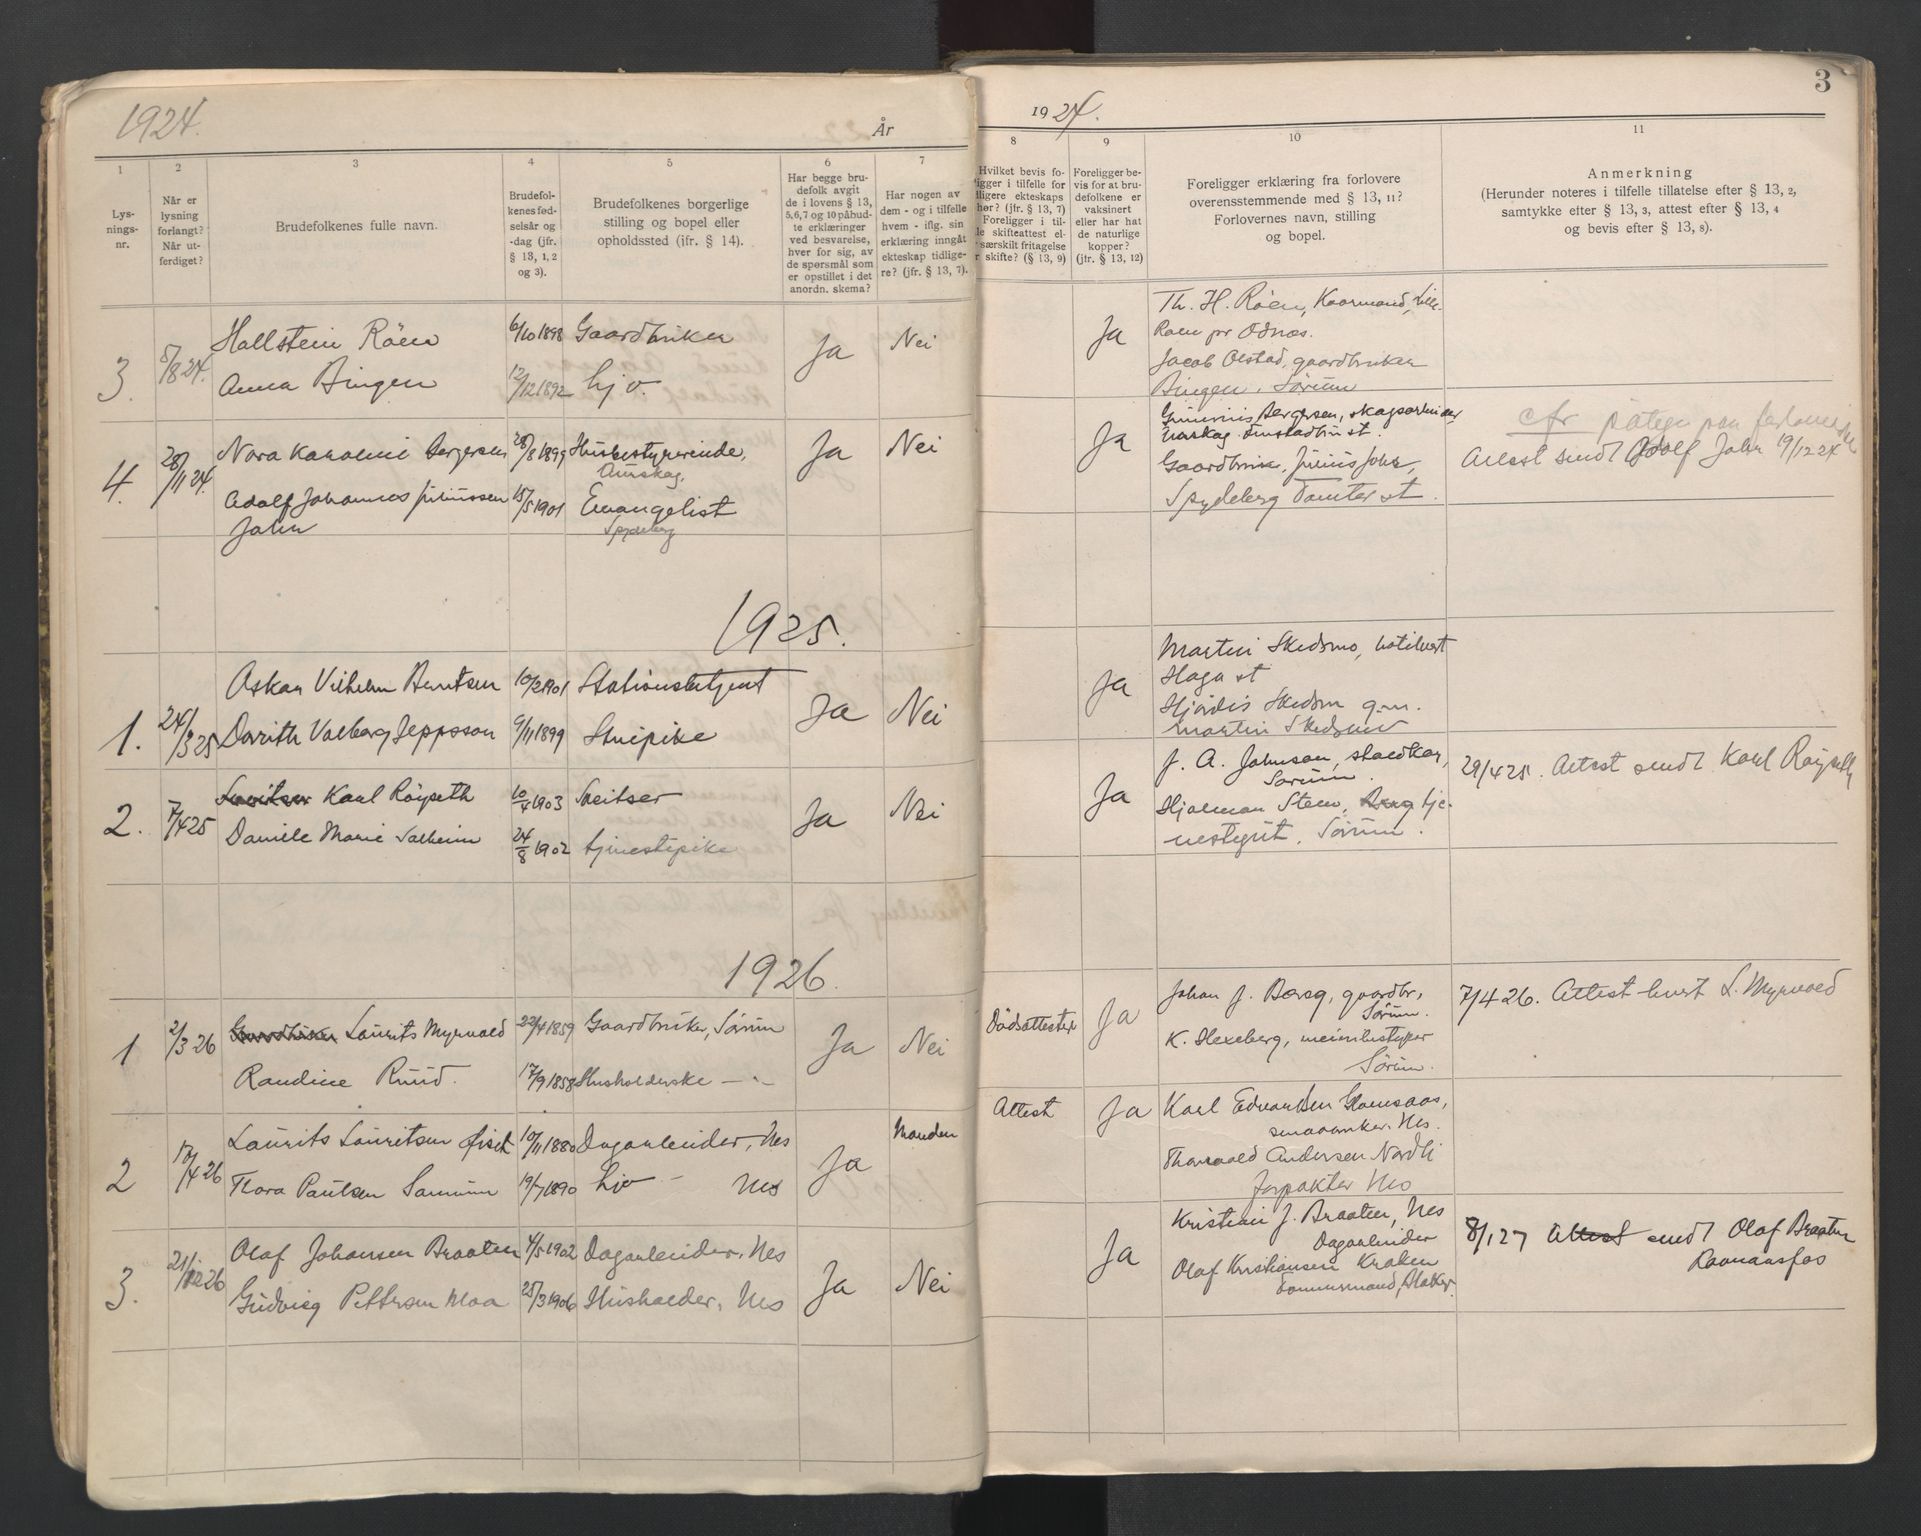 1924.
År
1
2
3
4
5
6
7
Lys-
nings-
nr.
Når er
lysning
forlangt?
Når ut-
ferdiget?
Brudefolkenes fulle navn.
Brudefol-
kenes fød-
selsår og
-dag (jfr.
§ 13, 1, 2
og 3).
Brudefolkenes borgerlige
stilling og bopel eller
opholdssted (jfr. § 14).
Har begge bru-
defolk avgit
de i lovens § 13,
5,6,7 og 10 påbud-
te erklæringer
ved besvarelse,
hver for sig, av
de spørsmål som
er opstillet i det
anordn. skema?
Har nogen av
dem - og i tilfelle
hvem - iflg. sin
erklæring inngått
ekteskap tidlige-
re? (jfr. § 13, 7).
3. 5/8 24. Hallstein Röen 6/10 1898 Gaardbruker Ja Nei
Anna Bingen 12/12 1892 hjv.
4. 28/11 24. Nora Karoline Bergersen 28/8 1899 Husbestyrerinde, Ja Nei
Aurskog.
Adolf Johannes Juliussen 15/5 1901 Evangelist
Jahr Spydeberg
1925.
1. 24/3 25 Oskar Vilhelm Berntsen 10/2 1901 Stationsbetjent Ja Nei
Dorith Valborg Jeppsson 9/11 1899 Stuepike
2. 7/4 25 Sveitser Karl Röyseth 10/4 1903 Sveitser Ja Nei
Daniele Marie Solheim 24/8 1902 tjenestepike
1926.
1 2/3 26 Gaardbruker Laurits Myrvold 22/4 1859 Gaardbruker, Sörum Ja Nei
Randine Ruud. 17/9 1858 Husholderske — " —
2 17/4 26 Laurits Lauritsen 10/11 1880 Dagarbeider, Nes Ja Manden
Thora Paulsen 19/7 1890 hjv — Nes
3. 21/12 26 Olaf Johansen Braaten 4/5 1902 Dagarbeider, Nes Ja Nei
Gudvieg Pettersen Moa 25/3 1906 Husholder, Nes
3
1924.
8
9
10
11
Hvilket bevis fo-
ligger i tilfelle for
dligere ekteskaps
hør? (jfr. § 13, 7)
Foreligger i til-
le skifteattest el-
særskilt fritagelse
skifte? (§ 13, 9)
Foreligger be-
vis for at bru-
defolkene er
vaksinert
eller har hat
de naturlige
kopper?
(jfr. § 13, 12)
Foreligger erklæring fra forlovere
overensstemmende med § 13, 11?
Forlovernes navn, stilling
og bopel.
Anmerkning
(Herunder noteres i tilfelle tillatelse efter § 13, 2,
samtykke efter § 13, 3, attest efter § 13, 4
og bevis efter § 13, 8).
Ja Th. H. Röen, Lille
Roen pr Odnes.
Jacob Olstad, gaardbruker
Bingen, Sörum
Ja Bergersen, skogsarbeider
Aurskog
Gaardbruk. Julius Jahr,
Spydeberg Tomter st.
cfr
Attest sendt Adolf Jahr 19/12 24
Ja Martin Skedsmo, hotelvert
Haga st
Hjördis Skedsm g.m.
Martin Skedsmo
Ja J. A. Johnsen, staldkar,
Sörum.
Hjalmar Steen, tje-
nestegut, Sörum.
29/4 25. Attest sendt Karl Röyseth
Dödsattester Ja Johan J. Berg, gaardbr,
Sörum.
K. Hexeberg, meieribestyrer
Sörum.
7/4 26. Attest hvert L. Myrvold
Attest Ja Karl Edvardsen
Nes.
Thorvald Andersen Nordli
forpakter Nes
Ja Kristian J. Braaten, Nes
Dagarbeider
Olaf Kristiansen Kraken
Tömmermand,
8/1 27 Attest sendt Olaf Braaten
Raanaasfos